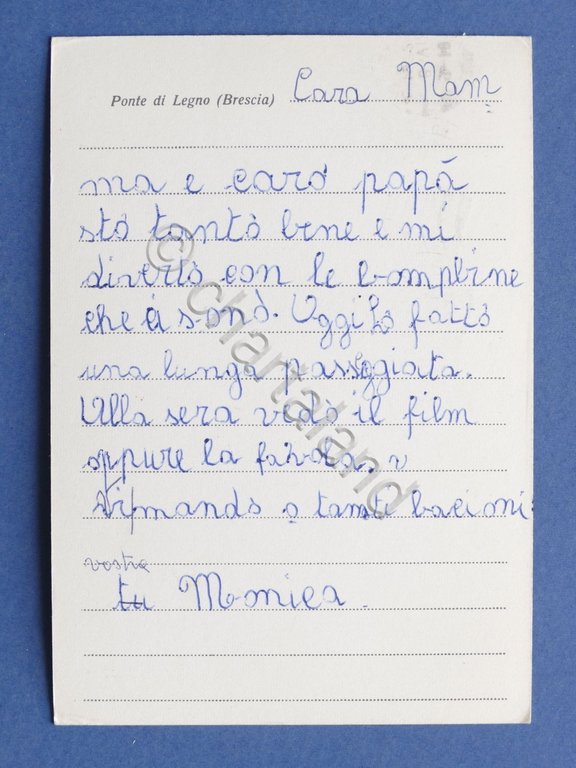 Ponte di Legno (Brescia) Cara Mam
ma e caro papá
sto tanto bene e mi
diverto con le bambine
che ci sono. Uggi ho fatto
una lunga passeggiata.
Alla sera vedo il film
oppure la favola. v
mando tanti baci mi
vostra
tu Monica.
© chartaland